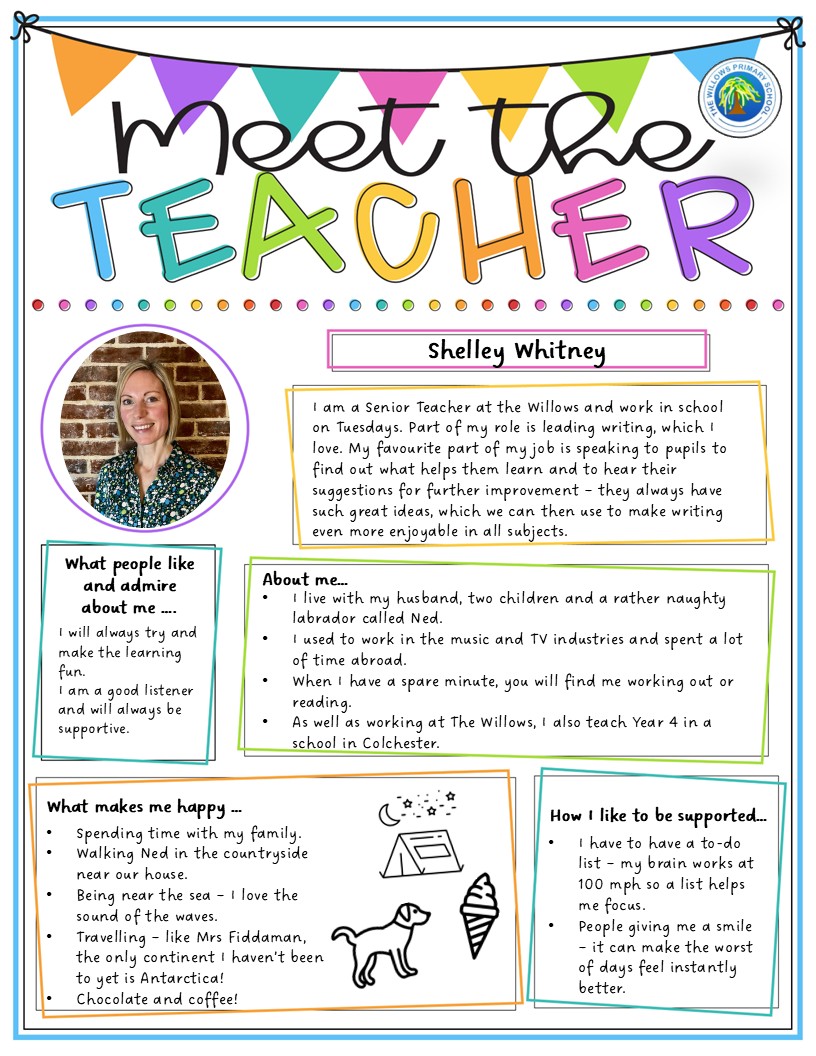 Meet the
THE WILLOWS PRIMARY SCHOOL
TEACHER
Shelley Whitney
I am a Senior Teacher at the Willows and work in school
on Tuesdays. Part of my role is leading writing, which I
love. My favourite part of my job is speaking to pupils to
find out what helps them learn and to hear their
suggestions for further improvement – they always have
such great ideas, which we can then use to make writing
even more enjoyable in all subjects.
What people like
and admire
about me ....
I will always try and
make the learning
fun.
I am a good listener
and will always be
supportive.
About me...
• I live with my husband, two children and a rather naughty
labrador called Ned.
• I used to work in the music and TV industries and spent a lot
of time abroad.
• When I have a spare minute, you will find me working out or
reading.
• As well as working at The Willows, I also teach Year 4 in a
school in Colchester.
What makes me happy ...
• Spending time with my family.
• Walking Ned in the countryside
near our house.
• Being near the sea – I love the
sound of the waves.
• Travelling – like Mrs Fiddaman,
the only continent I haven't been
to yet is Antarctica!
• Chocolate and coffee!
How I like to be supported...
• I have to have a to-do
list – my brain works at
100 mph so a list helps
me focus.
• People giving me a smile
– it can make the worst
of days feel instantly
better.